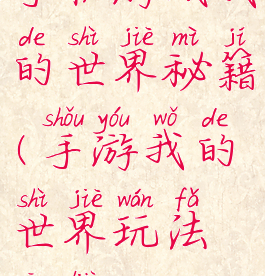 de shì jiè mì jí
的世界秘籍
shǒu yóu wǒ de
(手游我的
shì jiè wán fǎ
世界玩法